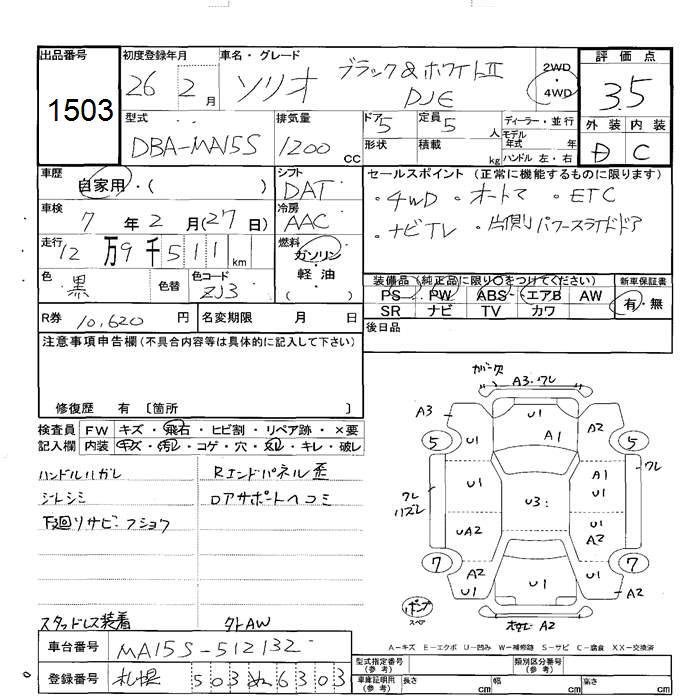 出品番号
1503
初度登録年月
26 2月
車名・グレード
ソリオ ブラック&ホワイトII
DJE
2WD
・
4WD
評価点
3.5
外装 内装
D C
型式
DBA-MA15S
排気量
1200 cc
ドア 5
形状
定員 5 人
積載 kg
ディーラー・並行
モデル年式 年
ハンドル 左・右
車歴
自家用・( )
シフト
DAT
セールスポイント (正常に機能するものに限ります)
・4WD ・オートマ ・ETC
・ナビTV ・片側パワースライドドア
車検
7年2月(27日)
冷房
AAC
走行
12万9千511km
燃料
ガソリン
・
軽油
( )
色
黒
色替
色コード
ZJ3
装備品(純正品に限り○をつけてください)
PS PW ABS エアB AW
SR ナビ TV カワ
新車保証書
有・無
R券 10,620円
名変期限 月 日
後日品
注意事項申告欄(不具合内容等は具体的に記入して下さい)
修復歴 有〔箇所 〕
検査員記入欄
FW キズ・飛石・ヒビ割・リペア跡・×要
内装 キズ・汚レ・コゲ・穴・スレ・キレ・破レ
ハンドルハガレ
シートシミ
下廻リサビ・フショク
スタッドレス装着
Rエンドパネル歪
ロアサポートヘコミ
タトAW
カバー欠
A3・ワレ
A3
U1
A2
5
U1
A1
5
U1
A1
U1
ワレ
ワレ
ハズレ
U3:
UA2
U1
A2
7
A2
UA2
U1
U1
A2
7
パンク
スペア
オサビ A2
A-キズ E-エクボ U-凹み W-補修跡 S-サビ C-腐食 XX-交換済
車台番号
MA15S-512132
登録番号
札幌 503 ぬ 6303
型式指定番号
(参考)
類別区分番号
(参考)
車庫証明用
(参考)
長さ cm
幅 cm
高さ cm